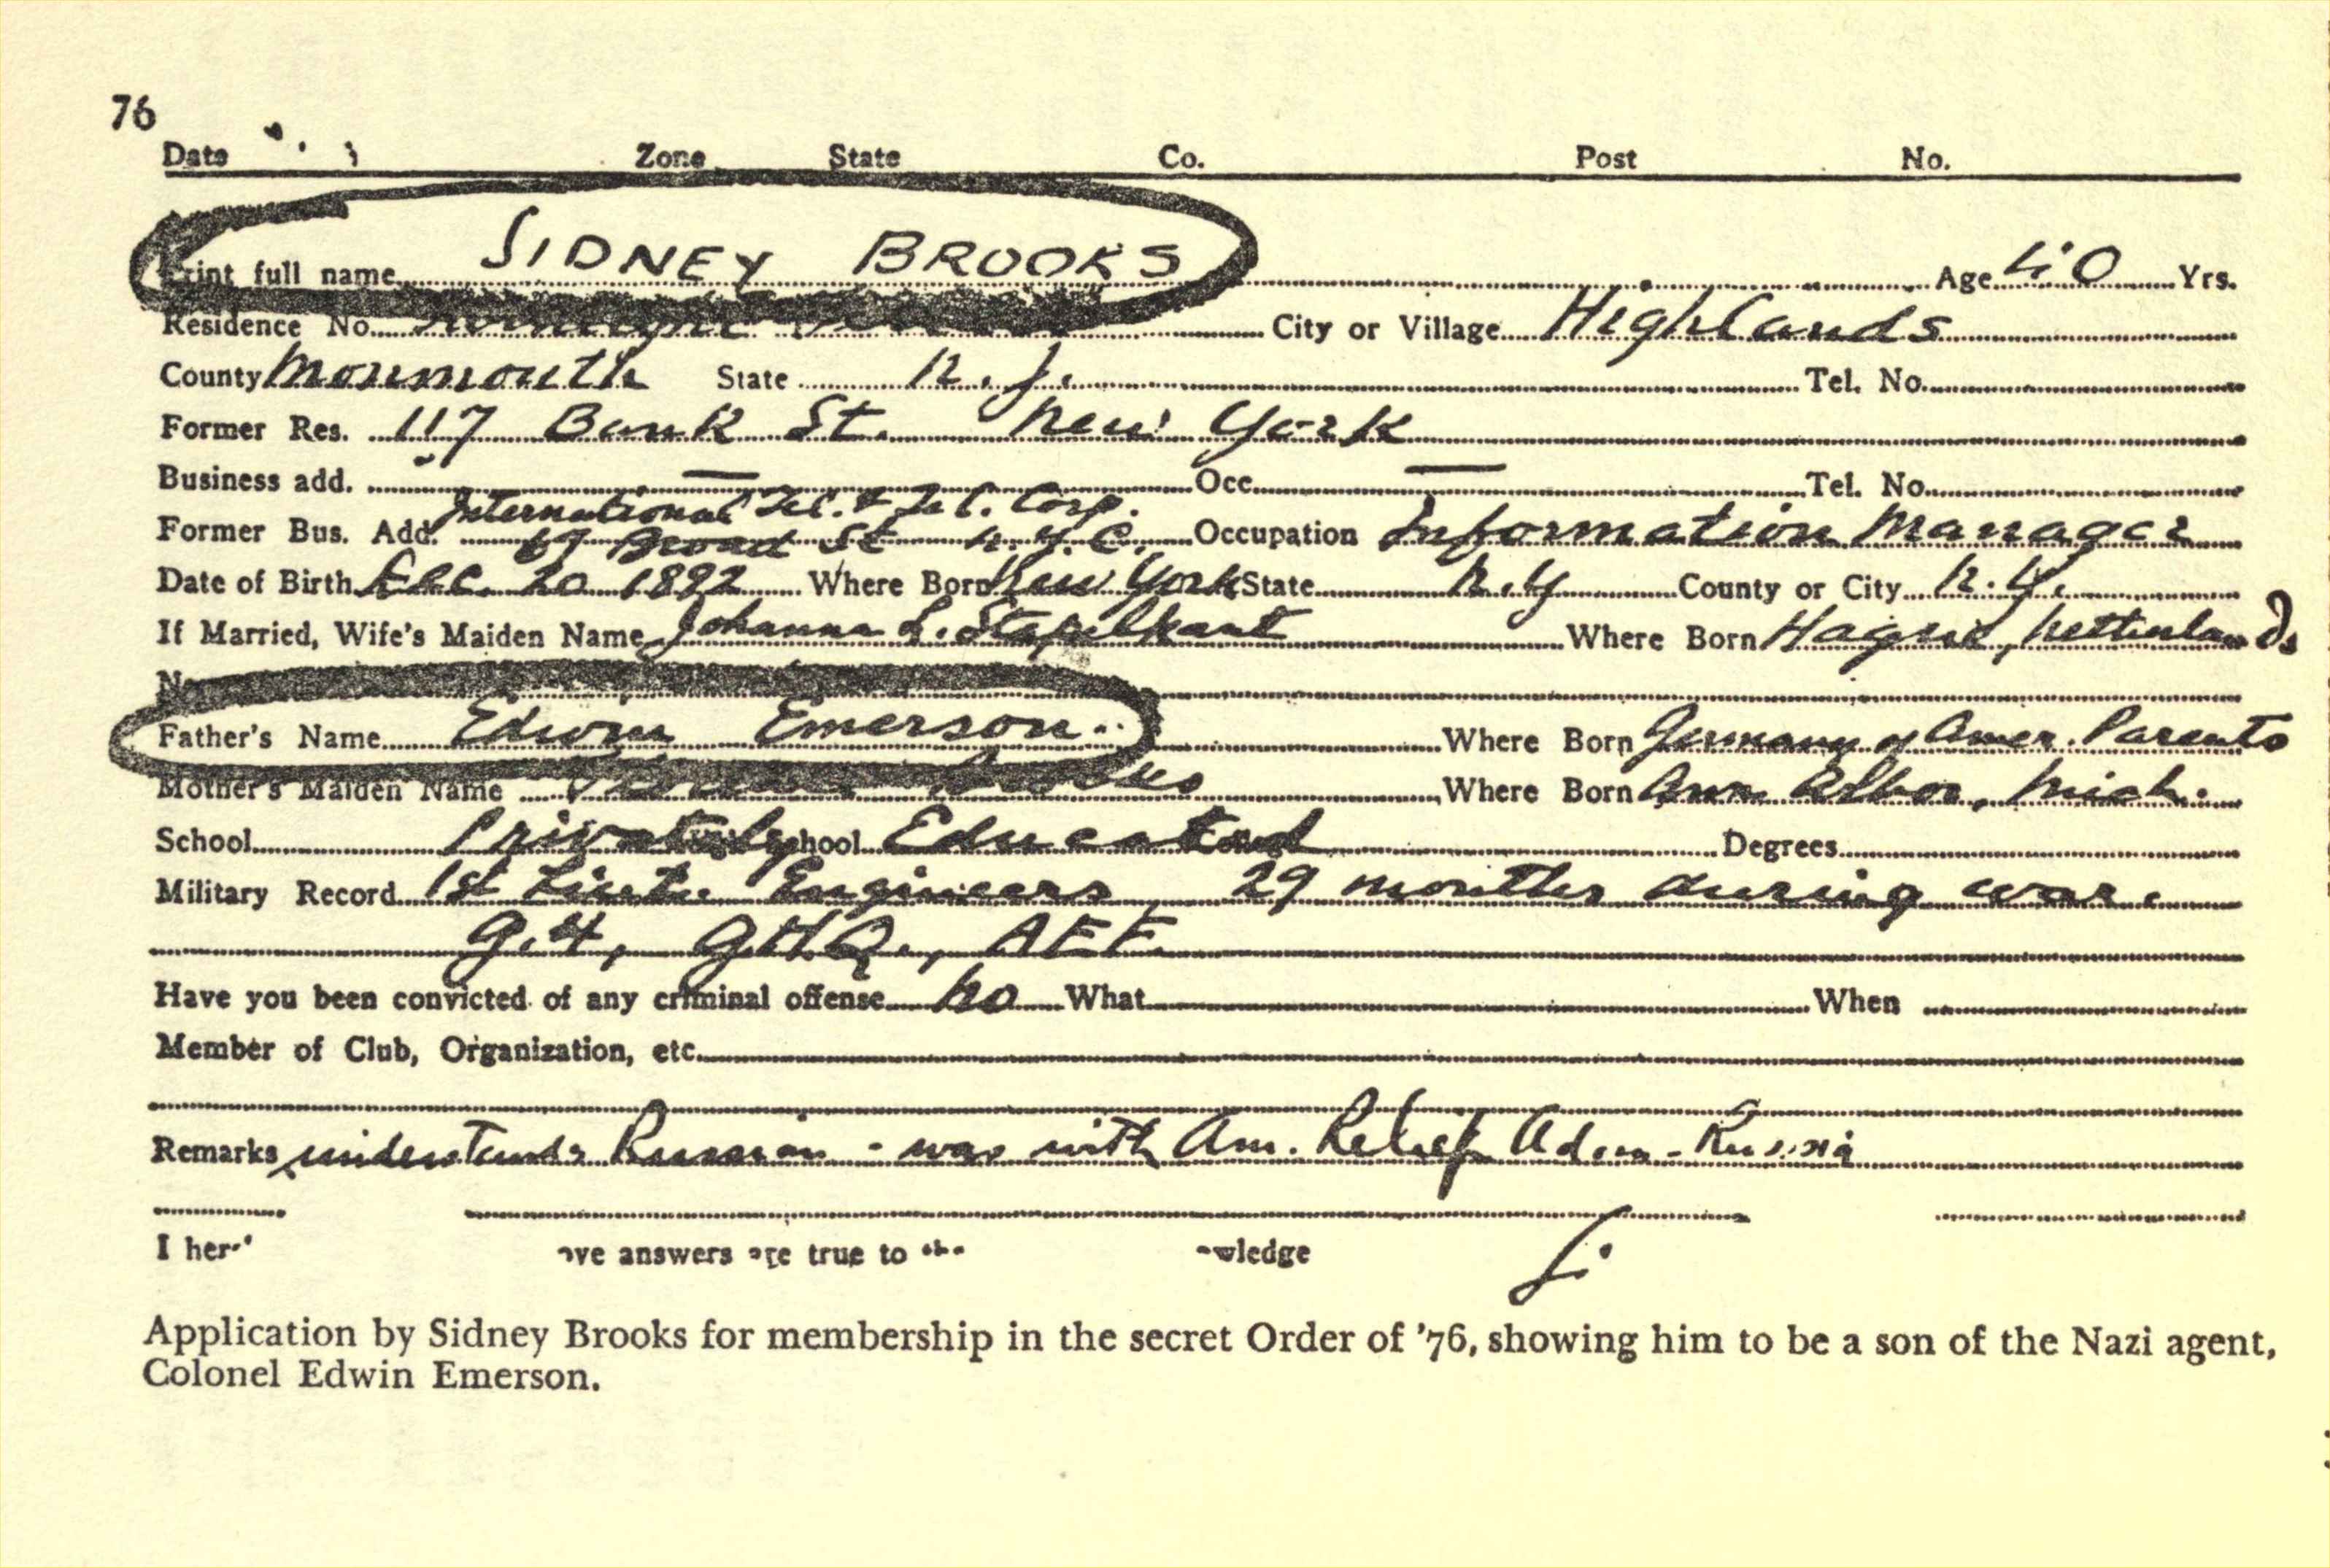 76
Date Zone State Co. Post No.
Print full name SIDNEY BROOKS Age 40 Yrs.
Residence No. City or Village Highlands
County Monmouth State N.J. Tel. No.
Former Res. 117 Bank St. New York
Business add. — Occ. — Tel. No.
International Tel. & Tel. Corp.
Former Bus. Add. 67 Broad St N.Y.C. Occupation Information Manager
Date of Birth Dec. 20 1892 Where Born New York State N.Y County or City N.Y.
If Married, Wife's Maiden Name Johanna L. Where Born Hague, Netherlands
Father's Name Edwin Emerson Where Born Germany of Amer. Parents
Mother's Maiden Name Where Born Ann Arbor, Mich.
School Privately School Educated Degrees
Military Record 1st Lieut. Engineers, 29 months during war.
G.4, G.H.Q., AEF.
Have you been convicted of any criminal offense No What When
Member of Club, Organization, etc.
Remarks understands Russian - was with Am. Relief Adm - Russia
I her ve answers are true to wledge
Application by Sidney Brooks for membership in the secret Order of '76, showing him to be a son of the Nazi agent,
Colonel Edwin Emerson.